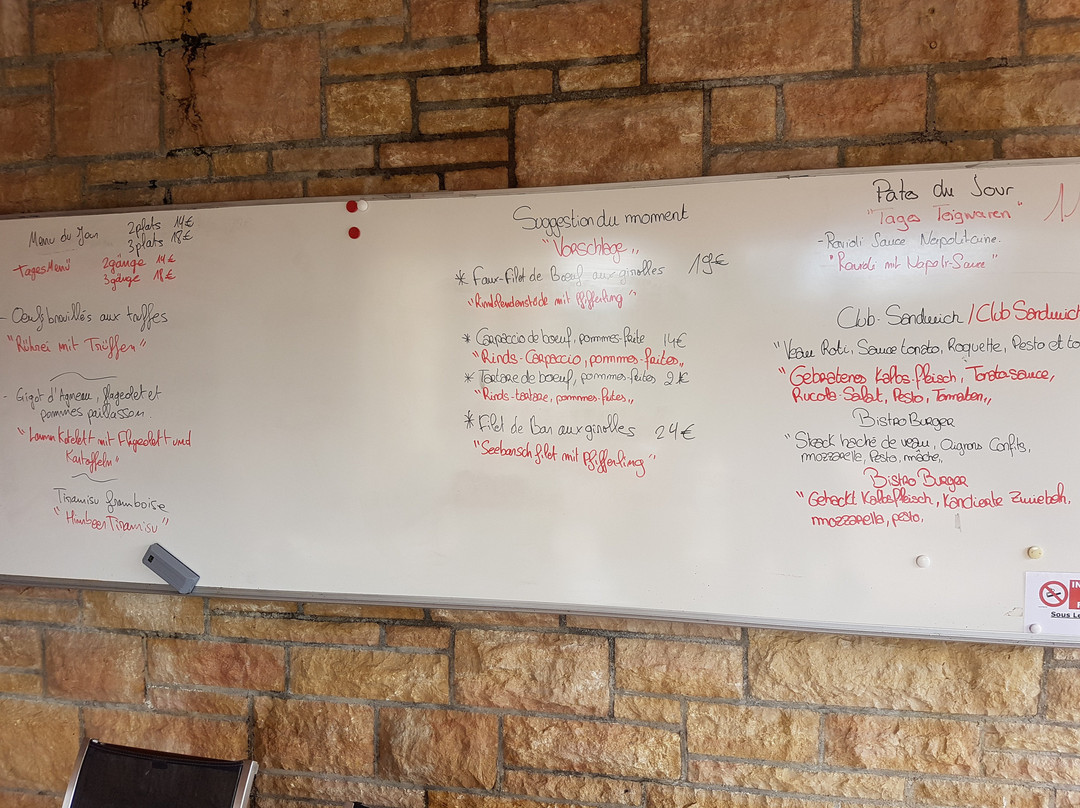 Menu du Jour 2 plats 14€
3 plats 18€
TagesMenü 2gänge 14€
3gänge 18€
- Oeufs brouillés aux truffes
"Rührei mit Trüffen"
- Gigot d'Agneau, flageolet et
pommes paillasson.
"Lamm Kotelett mit Flageolett und
Kartoffeln"
Tiramisu framboise
"Himbeer Tiramisu"
Suggestion du moment
"Vorschlage„
* Faux-Filet de Boeuf aux girolles 19€
"Rindslendenstück mit Pfifferling"
* Carpaccio de boeuf, pommes-frite 14€
"Rinds-Carpaccio, pommes-frites„
* Tartare de boeuf, pommes-frites 21€
"Rinds-tartare, pommes-frites„
* Filet de Bar aux girolles 24€
"Seebarsch filet mit Pfifferling"
Pates du Jour
"Tages Teigwaren"
- Ravioli Sauce Napolitaine.
"Ravioli mit Napoli-Sauce"
Club-Sandwich / Club Sandwich
"Veau Roti, Sauce tonato, Roquette, Pesto et to
"Gebratenes Kalbs-fleisch, Tonato sauce,
Rucola-Salat, Pesto, Tomaten„
Bistro Burger
"Steack haché de veau, Oignons Confits,
mozzarella, Pesto, mâche„
Bistro Burger
"Gehackt Kalbsfleisch, Kandierte Zwiebeln,
mozzarella, pesto,
Sous Le